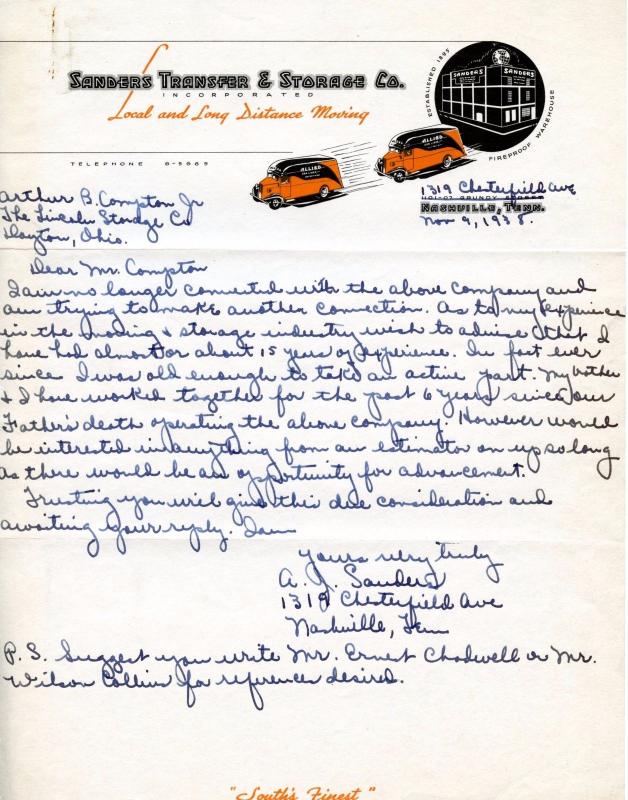 SANDERS TRANSFER & STORAGE CO.
INCORPORATED
Local and Long Distance Moving
TELEPHONE 6-5669
ESTABLISHED 1895
SANDERS SANDERS
FIREPROOF WAREHOUSE
ALLIED
ALLIED
1319 Chesterfield Ave
NASHVILLE, TENN.
Nov 9, 1938.
Arthur B. Compton Jr
The Lincoln Storage Co
Dayton, Ohio.
Dear Mr. Compton
I am no longer connected with the above company and
am trying to make another connection. As to my experience
in the moving & storage industry wish to advise that I
have had almost or about 15 years of experience. In fact ever
since I was old enough to take an active part. My brother
& I have worked together for the past 6 years since our
Father's death operating the above company. However would
be interested in anything from an estimator on up so long
as there would be an opportunity for advancement.
Trusting you will give this due consideration and
awaiting your reply. I am
Yours very truly
A. J. Sanders
1319 Chesterfield Ave
Nashville, Tenn
P.S. Suggest you write Mr. Ernest Chadwell or Mr.
Wilson Collins for references desired.
"South's Finest"